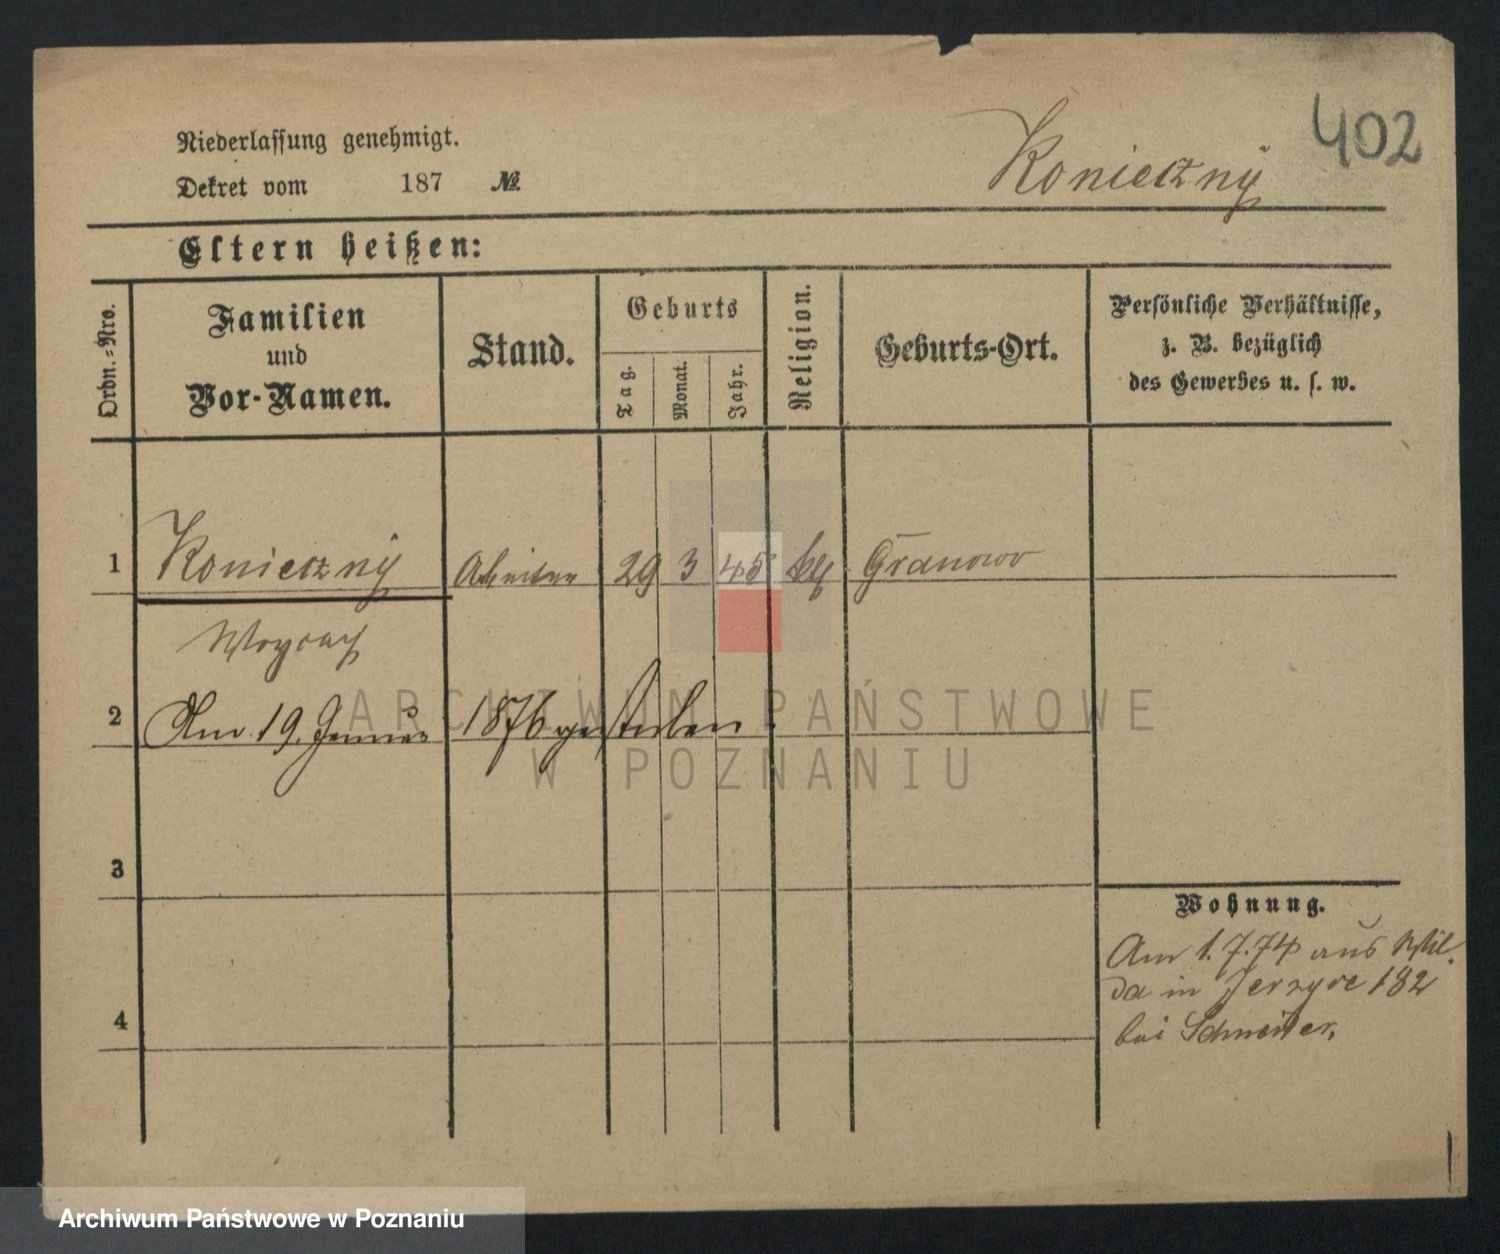 402
Niederlassung genehmigt.
Dekret vom 187 №
Konieczny
Eltern heißen:
Ordn.=Nro.
Familien
und
Vor-Namen.
Stand.
Geburts
Tag.
Monat.
Jahr.
Religion.
Geburts-Ort.
Persönliche Verhältnisse,
z. B. bezüglich
des Gewerbes u. s. w.
1 Konieczny Arbeiter 29 3 45 kth Granowo
Woyciech
2 Am 19. Januar 1876 gestorben.
3
4
Wohnung.
Am 1.7.74 aus Wil.
da in Jerzyce 182
bei Schneider.
ARCHIWUM PAŃSTWOWE
W POZNANIU
Archiwum Państwowe w Poznaniu